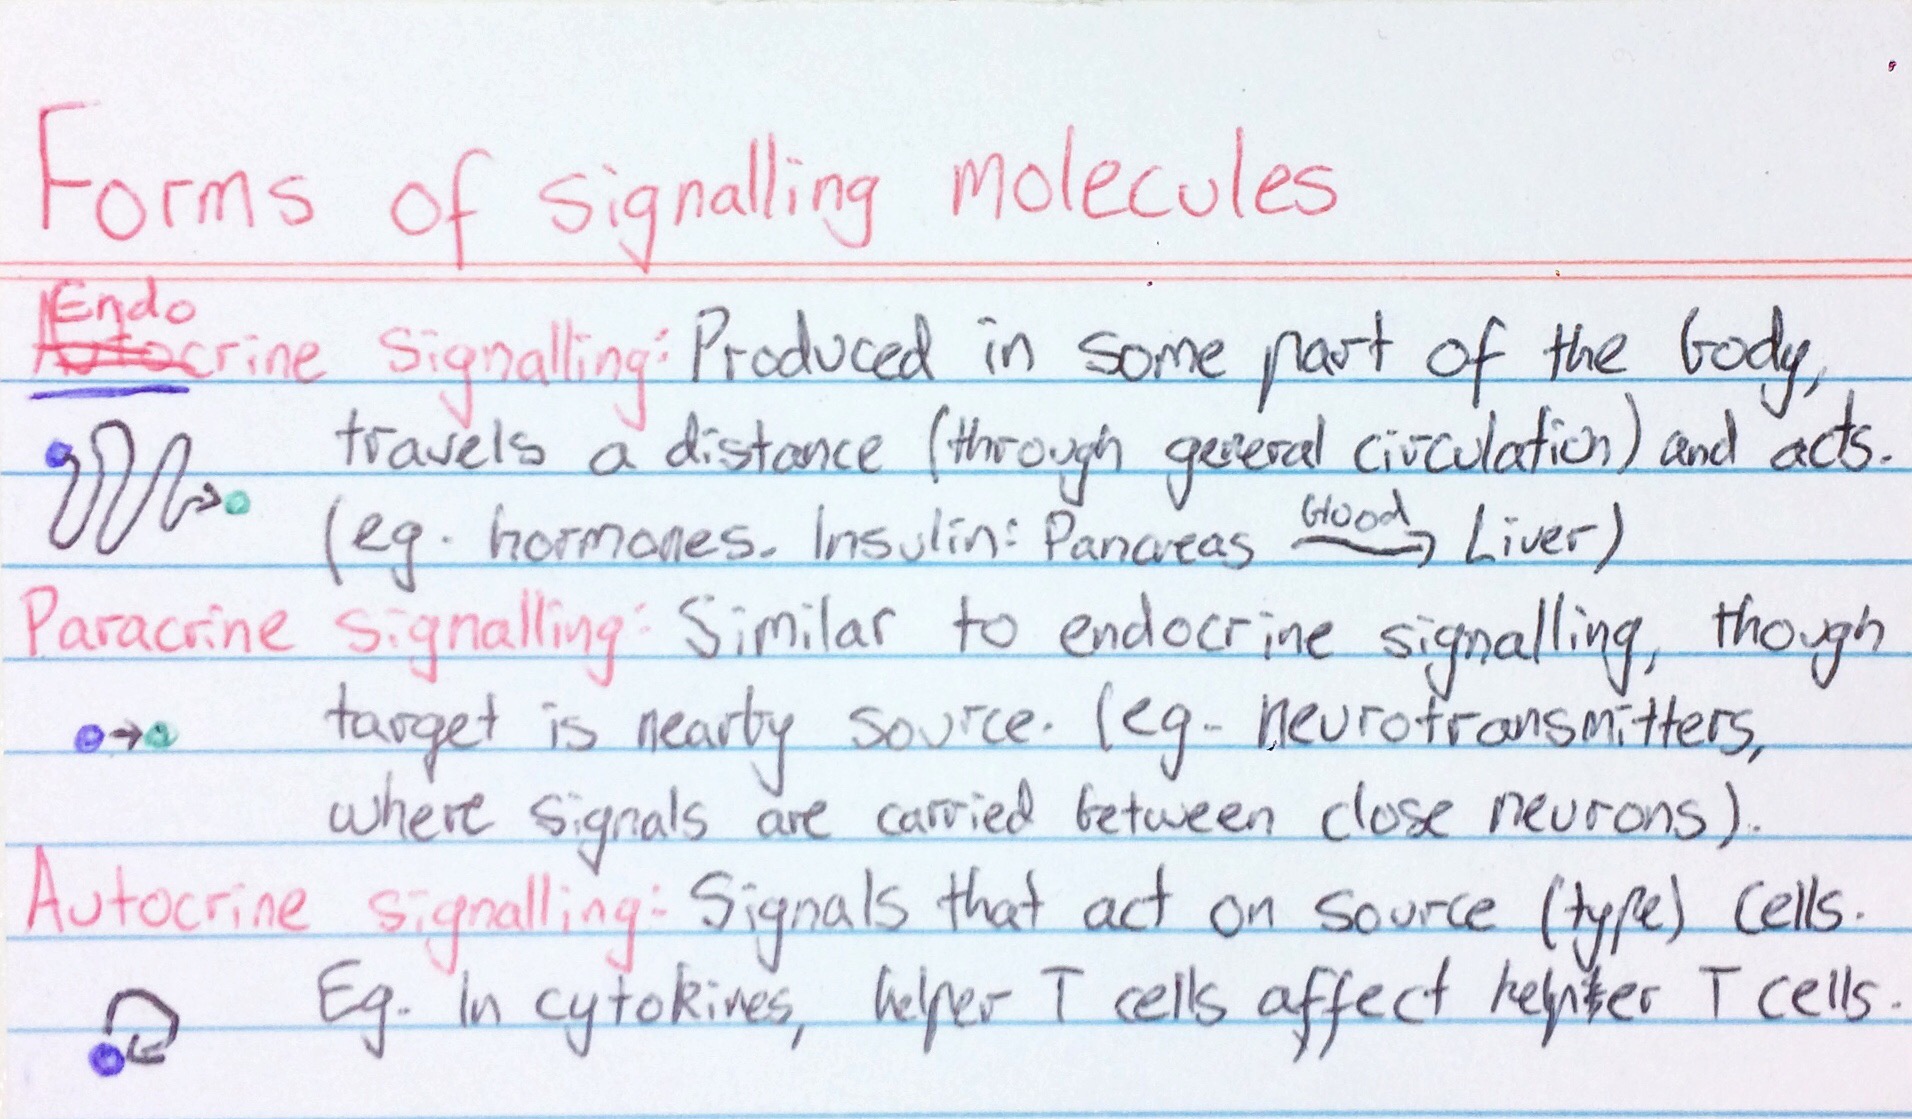 Forms of signalling molecules
Endo
Autocrine signalling: Produced in some part of the body,
travels a distance (through general circulation) and acts.
(eg. hormones. Insulin: Pancreas blood → Liver)
Paracrine signalling: Similar to endocrine signalling, though
target is nearby source. (eg. neurotransmitters,
where signals are carried between close neurons).
Autocrine signalling: Signals that act on source (type) cells.
Eg. In cytokines, helper T cells affect helper T cells.